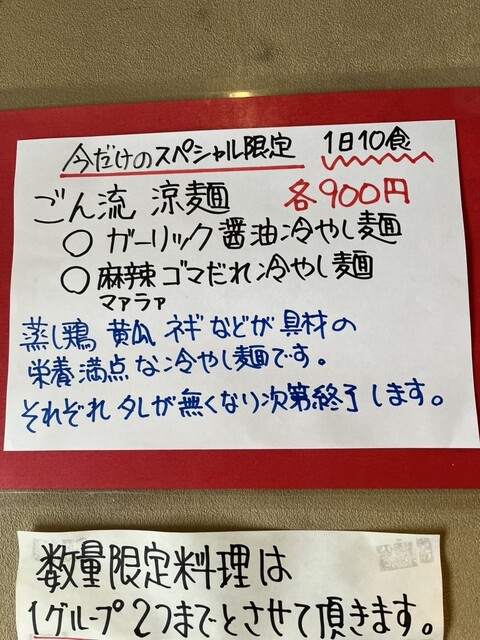 今だけのスペシャル限定 1日10食
ごん流 涼麺 各900円
○ ガーリック醤油冷やし麺
○ 麻辣ゴマだれ冷やし麺
マァラァ
蒸し鶏 黄瓜 ネギなどが具材の
栄養満点な冷やし麺です。
それぞれタレが無くなり次第終了します。
数量限定料理は
1グループ2つまでとさせて頂きます。